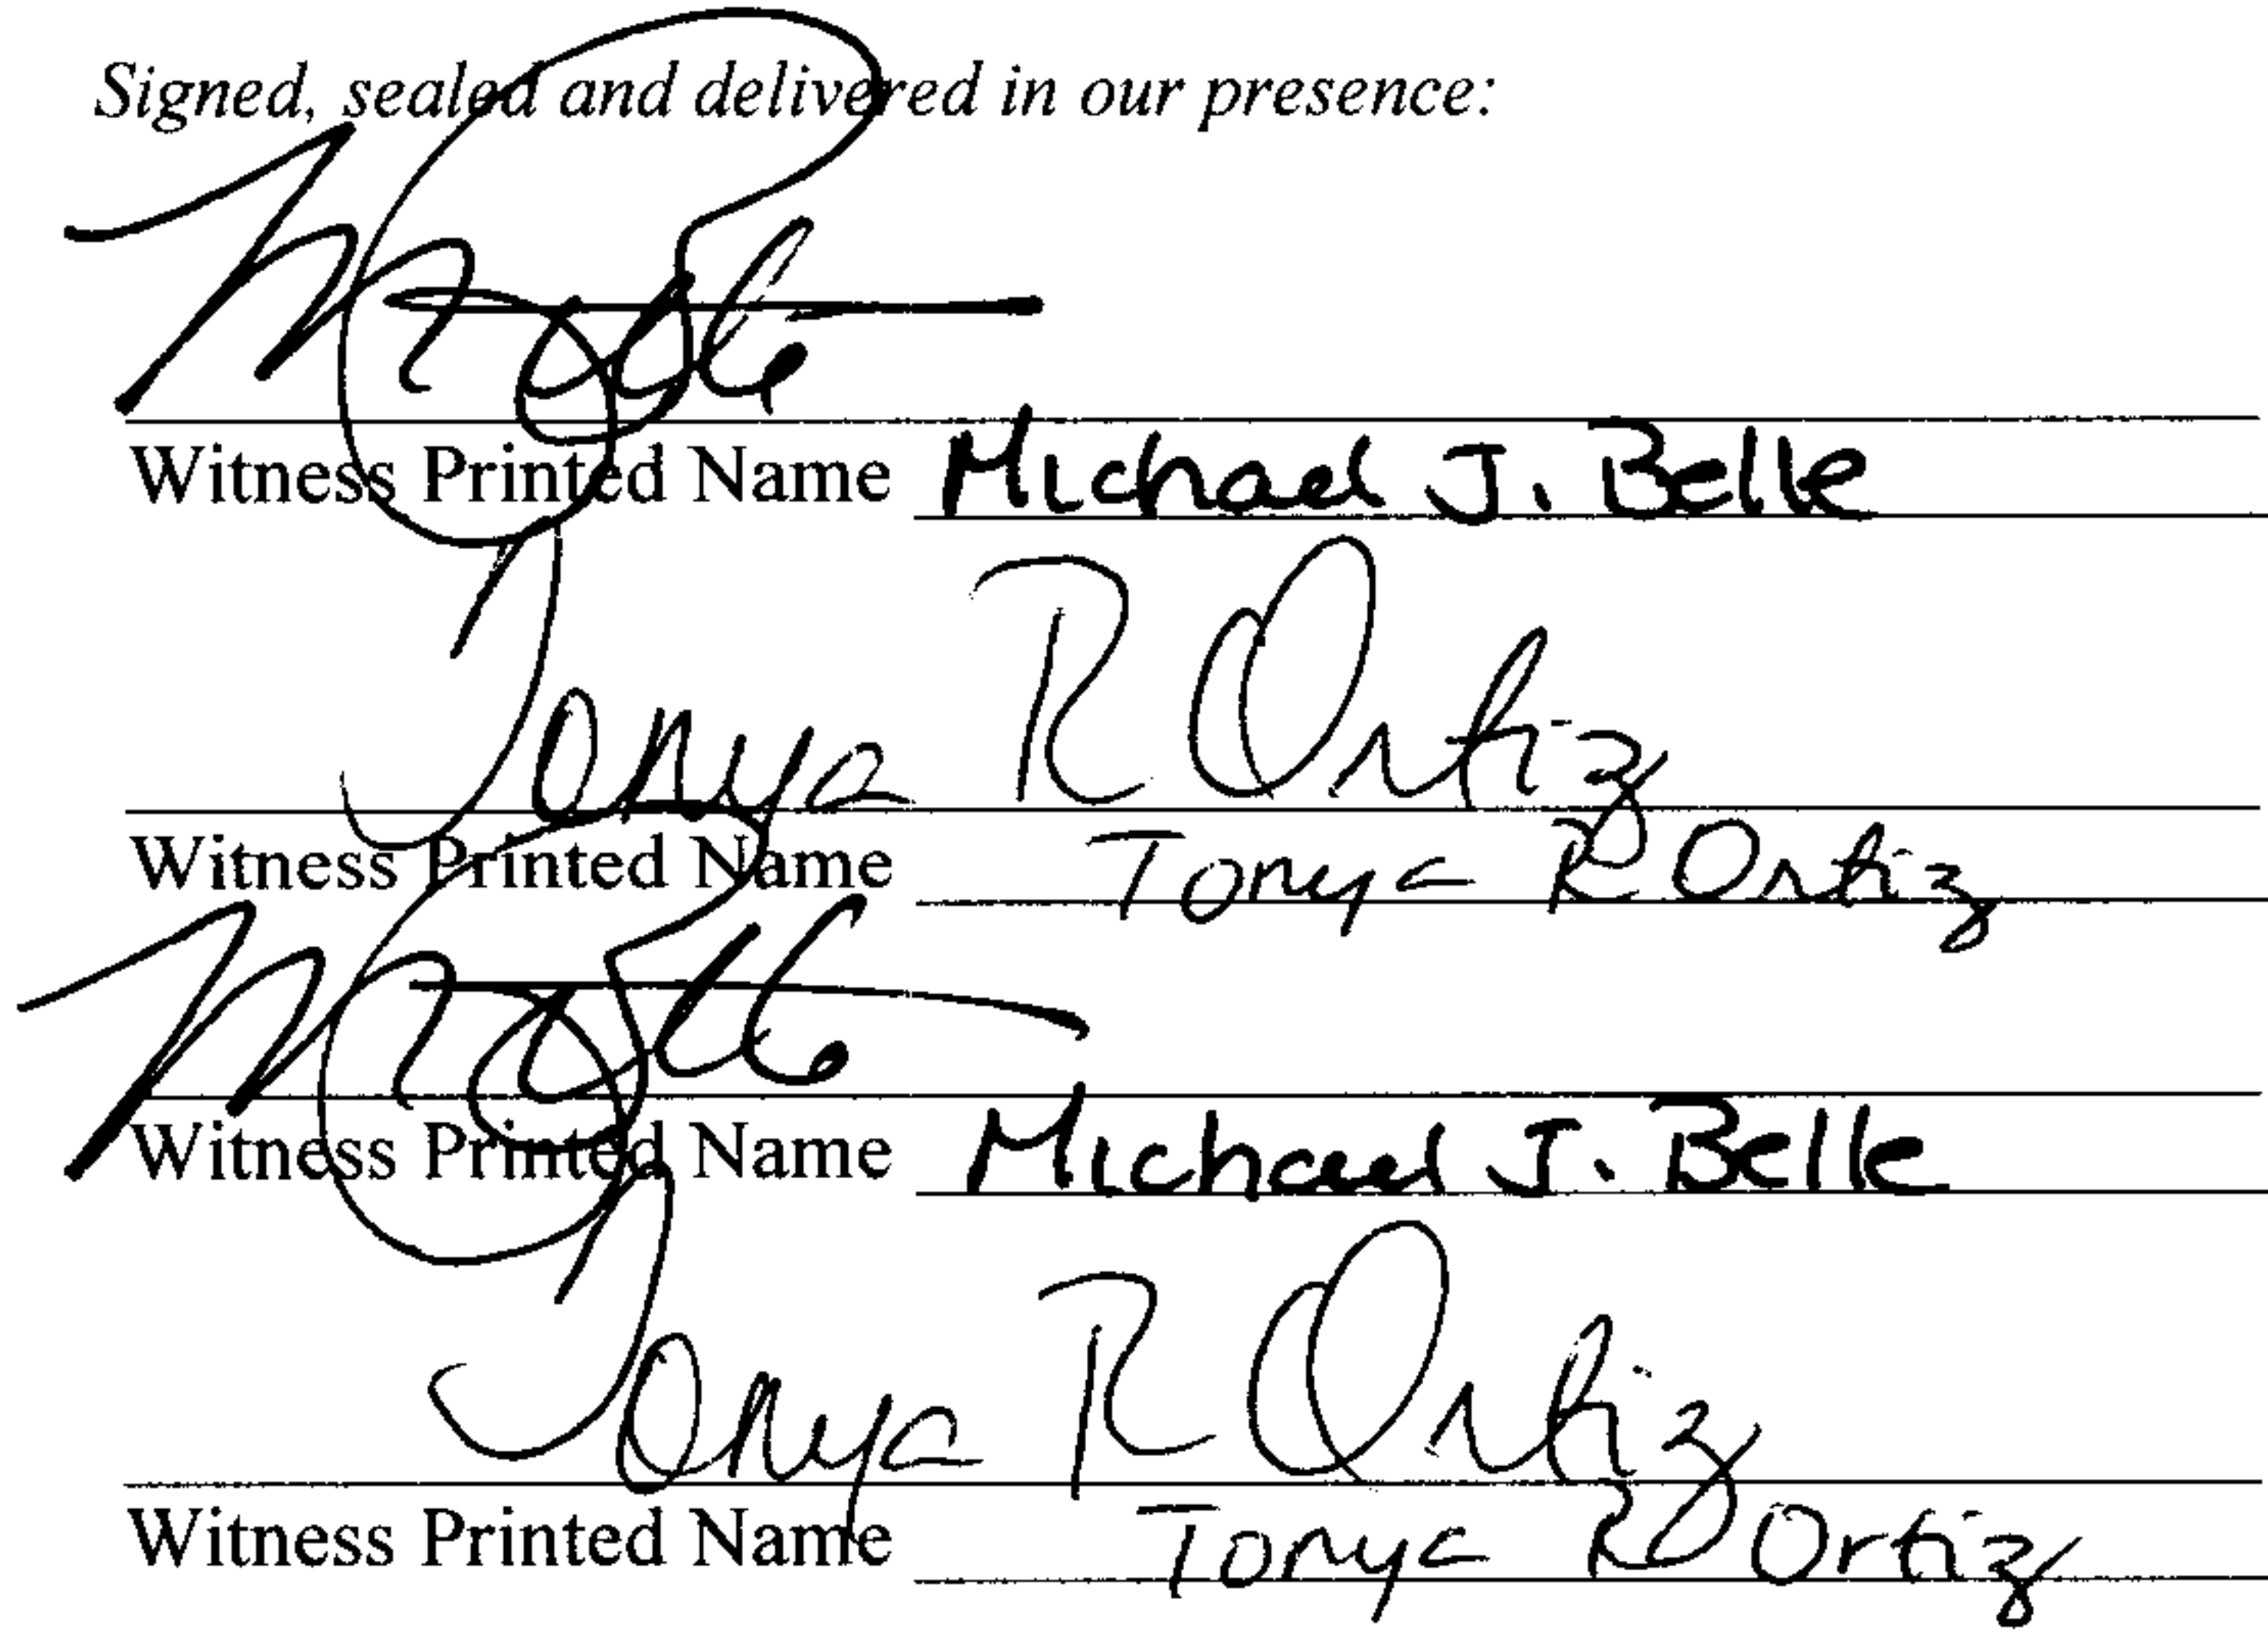 Signed, sealed and delivered in our presence:
Witness Printed Name Michael J. Belle
Tonya R Ortiz
Witness Printed Name Tonya R Ortiz
Witness Printed Name Michael J. Belle
Tonya R Ortiz
Witness Printed Name Tonya R Ortiz